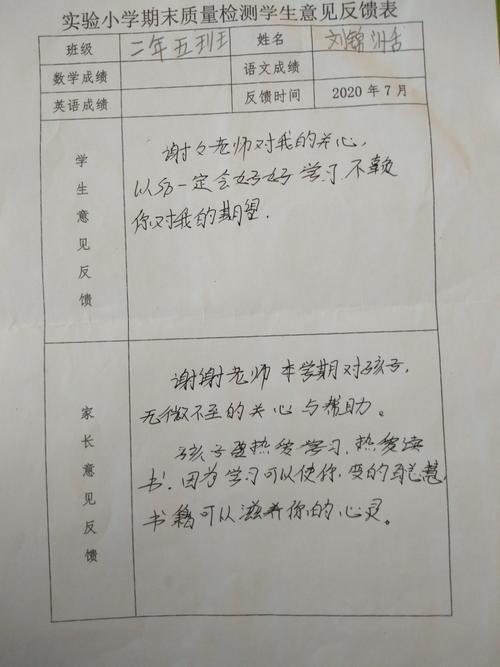 实验小学期末质量检测学生意见反馈表
班级 二年五班班 姓名 刘锦
数学成绩 语文成绩
英语成绩 反馈时间 2020年7月
学生意见反馈
谢々老师对我的关心,
以后一定会好好学习不辜负
你对我的期望.
家长意见反馈
谢谢老师本学期对孩子,
无微不至的关心与帮助。
孩子要热爱学习,热爱读
书.因为学习可以使你,变的智慧
书籍可以滋养你的心灵。